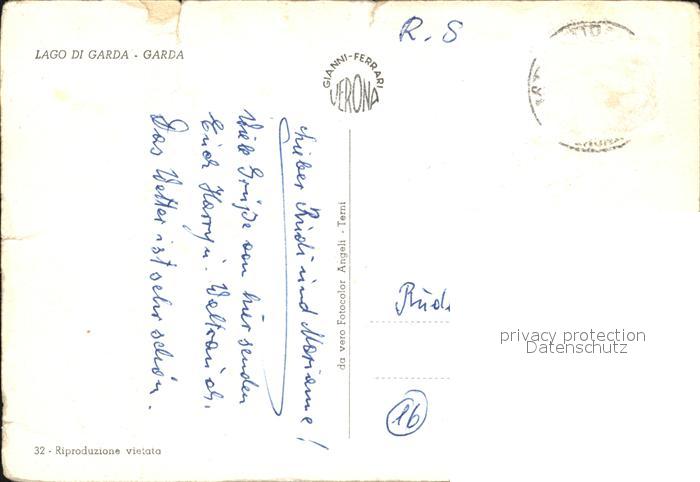 LAGO DI GARDA - GARDA
R. S
GIANNI-FERRARI
VERONA
Lieber Rudi und Marianne!
Viele Grüße von hier senden
Euch Harry u. Waltraud.
Das Wetter ist sehr schön.
da vero Fotocolor Angeli - Terni
Rüd.
privacy protection
Datenschutz
16
32 - Riproduzione vietata